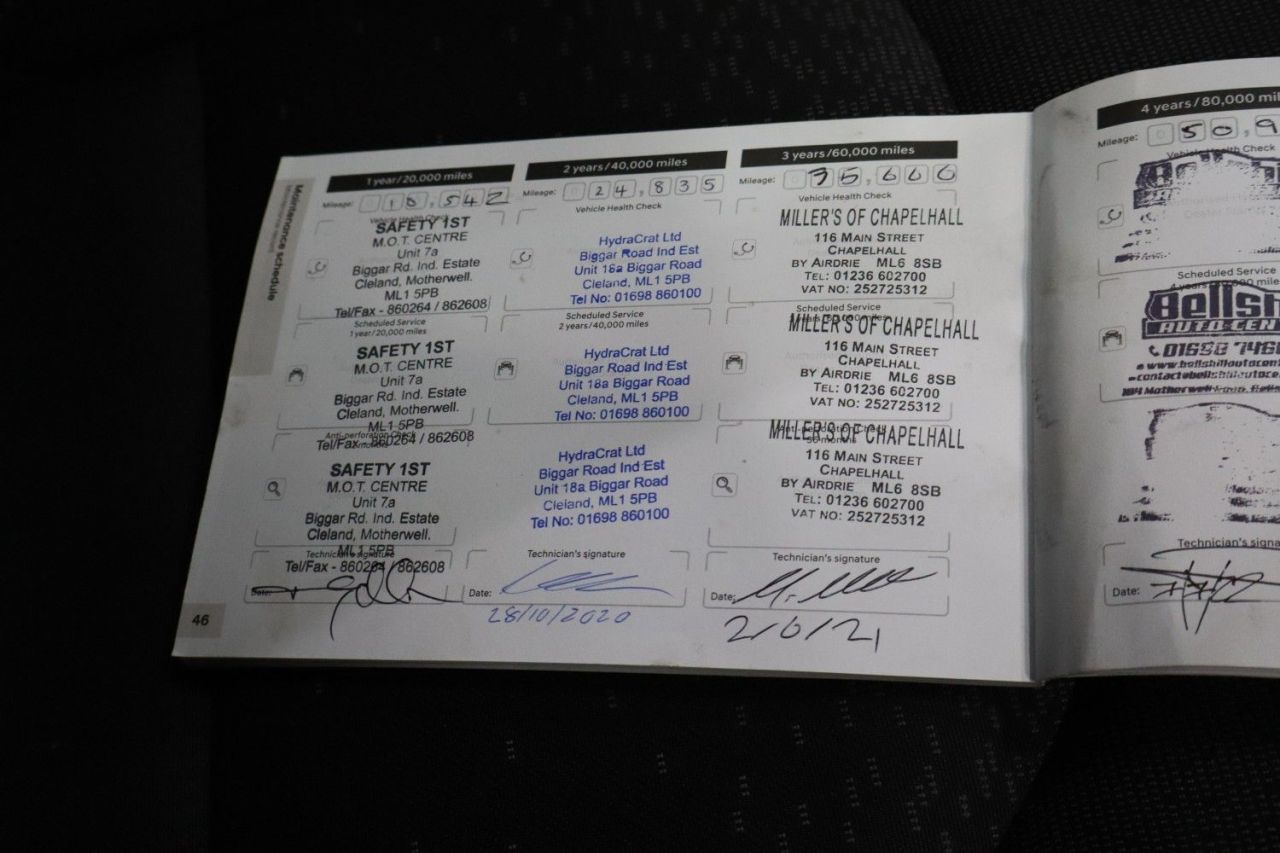 Maintenance schedule
1 year/20,000 miles
Mileage: 10,542
Vehicle Health Check
SAFETY 1ST
M.O.T. CENTRE
Unit 7a
Biggar Rd. Ind. Estate
Cleland, Motherwell.
ML1 5PB
Tel/Fax - 860264 / 862608
Scheduled Service
1 year/20,000 miles
SAFETY 1ST
M.O.T. CENTRE
Unit 7a
Biggar Rd. Ind. Estate
Cleland, Motherwell.
ML1 5PB
Anti-perforation Check
Tel/Fax - 860264 / 862608
SAFETY 1ST
M.O.T. CENTRE
Unit 7a
Biggar Rd. Ind. Estate
Cleland, Motherwell.
ML1 5PB
Technician's signature
Tel/Fax - 860264 / 862608
Date:
46
2 years/40,000 miles
Mileage: 0 24,835
Vehicle Health Check
HydraCrat Ltd
Biggar Road Ind Est
Unit 18a Biggar Road
Cleland, ML1 5PB
Tel No: 01698 860100
Scheduled Service
2 years/40,000 miles
HydraCrat Ltd
Biggar Road Ind Est
Unit 18a Biggar Road
Cleland, ML1 5PB
Tel No: 01698 860100
HydraCrat Ltd
Biggar Road Ind Est
Unit 18a Biggar Road
Cleland, ML1 5PB
Tel No: 01698 860100
Technician's signature
Date:
28/10/2020
3 years/60,000 miles
Mileage: 0 35,666
Vehicle Health Check
MILLER'S OF CHAPELHALL
116 MAIN STREET
CHAPELHALL
BY AIRDRIE ML6 8SB
TEL: 01236 602700
VAT NO: 252725312
Scheduled Service
MILLER'S OF CHAPELHALL
116 MAIN STREET
CHAPELHALL
BY AIRDRIE ML6 8SB
TEL: 01236 602700
VAT NO: 252725312
MILLER'S OF CHAPELHALL
116 MAIN STREET
CHAPELHALL
BY AIRDRIE ML6 8SB
TEL: 01236 602700
VAT NO: 252725312
Technician's signature
Date:
2/6/21
4 years/80,000 mil
Mileage: 0 50,9
Vehicle Health Check
Scheduled Service
Bellsh
AUTO CEN
Technician's signa
Date: